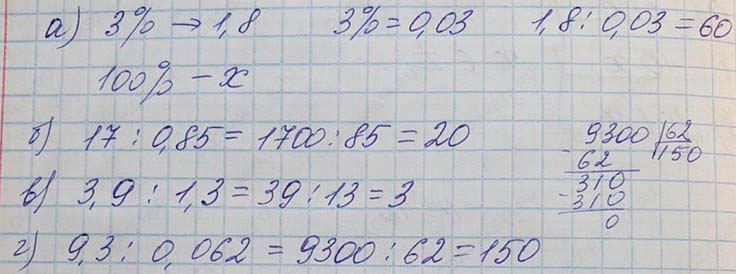 а) 3% → 1,8 3% = 0,03 1,8 : 0,03 = 60
100% – х
б) 17 : 0,85 = 1700 : 85 = 20
в) 3,9 : 1,3 = 39 : 13 = 3
г) 9,3 : 0,062 = 9300 : 62 = 150
9300 | 62
- 62 | 150
310
- 310
0